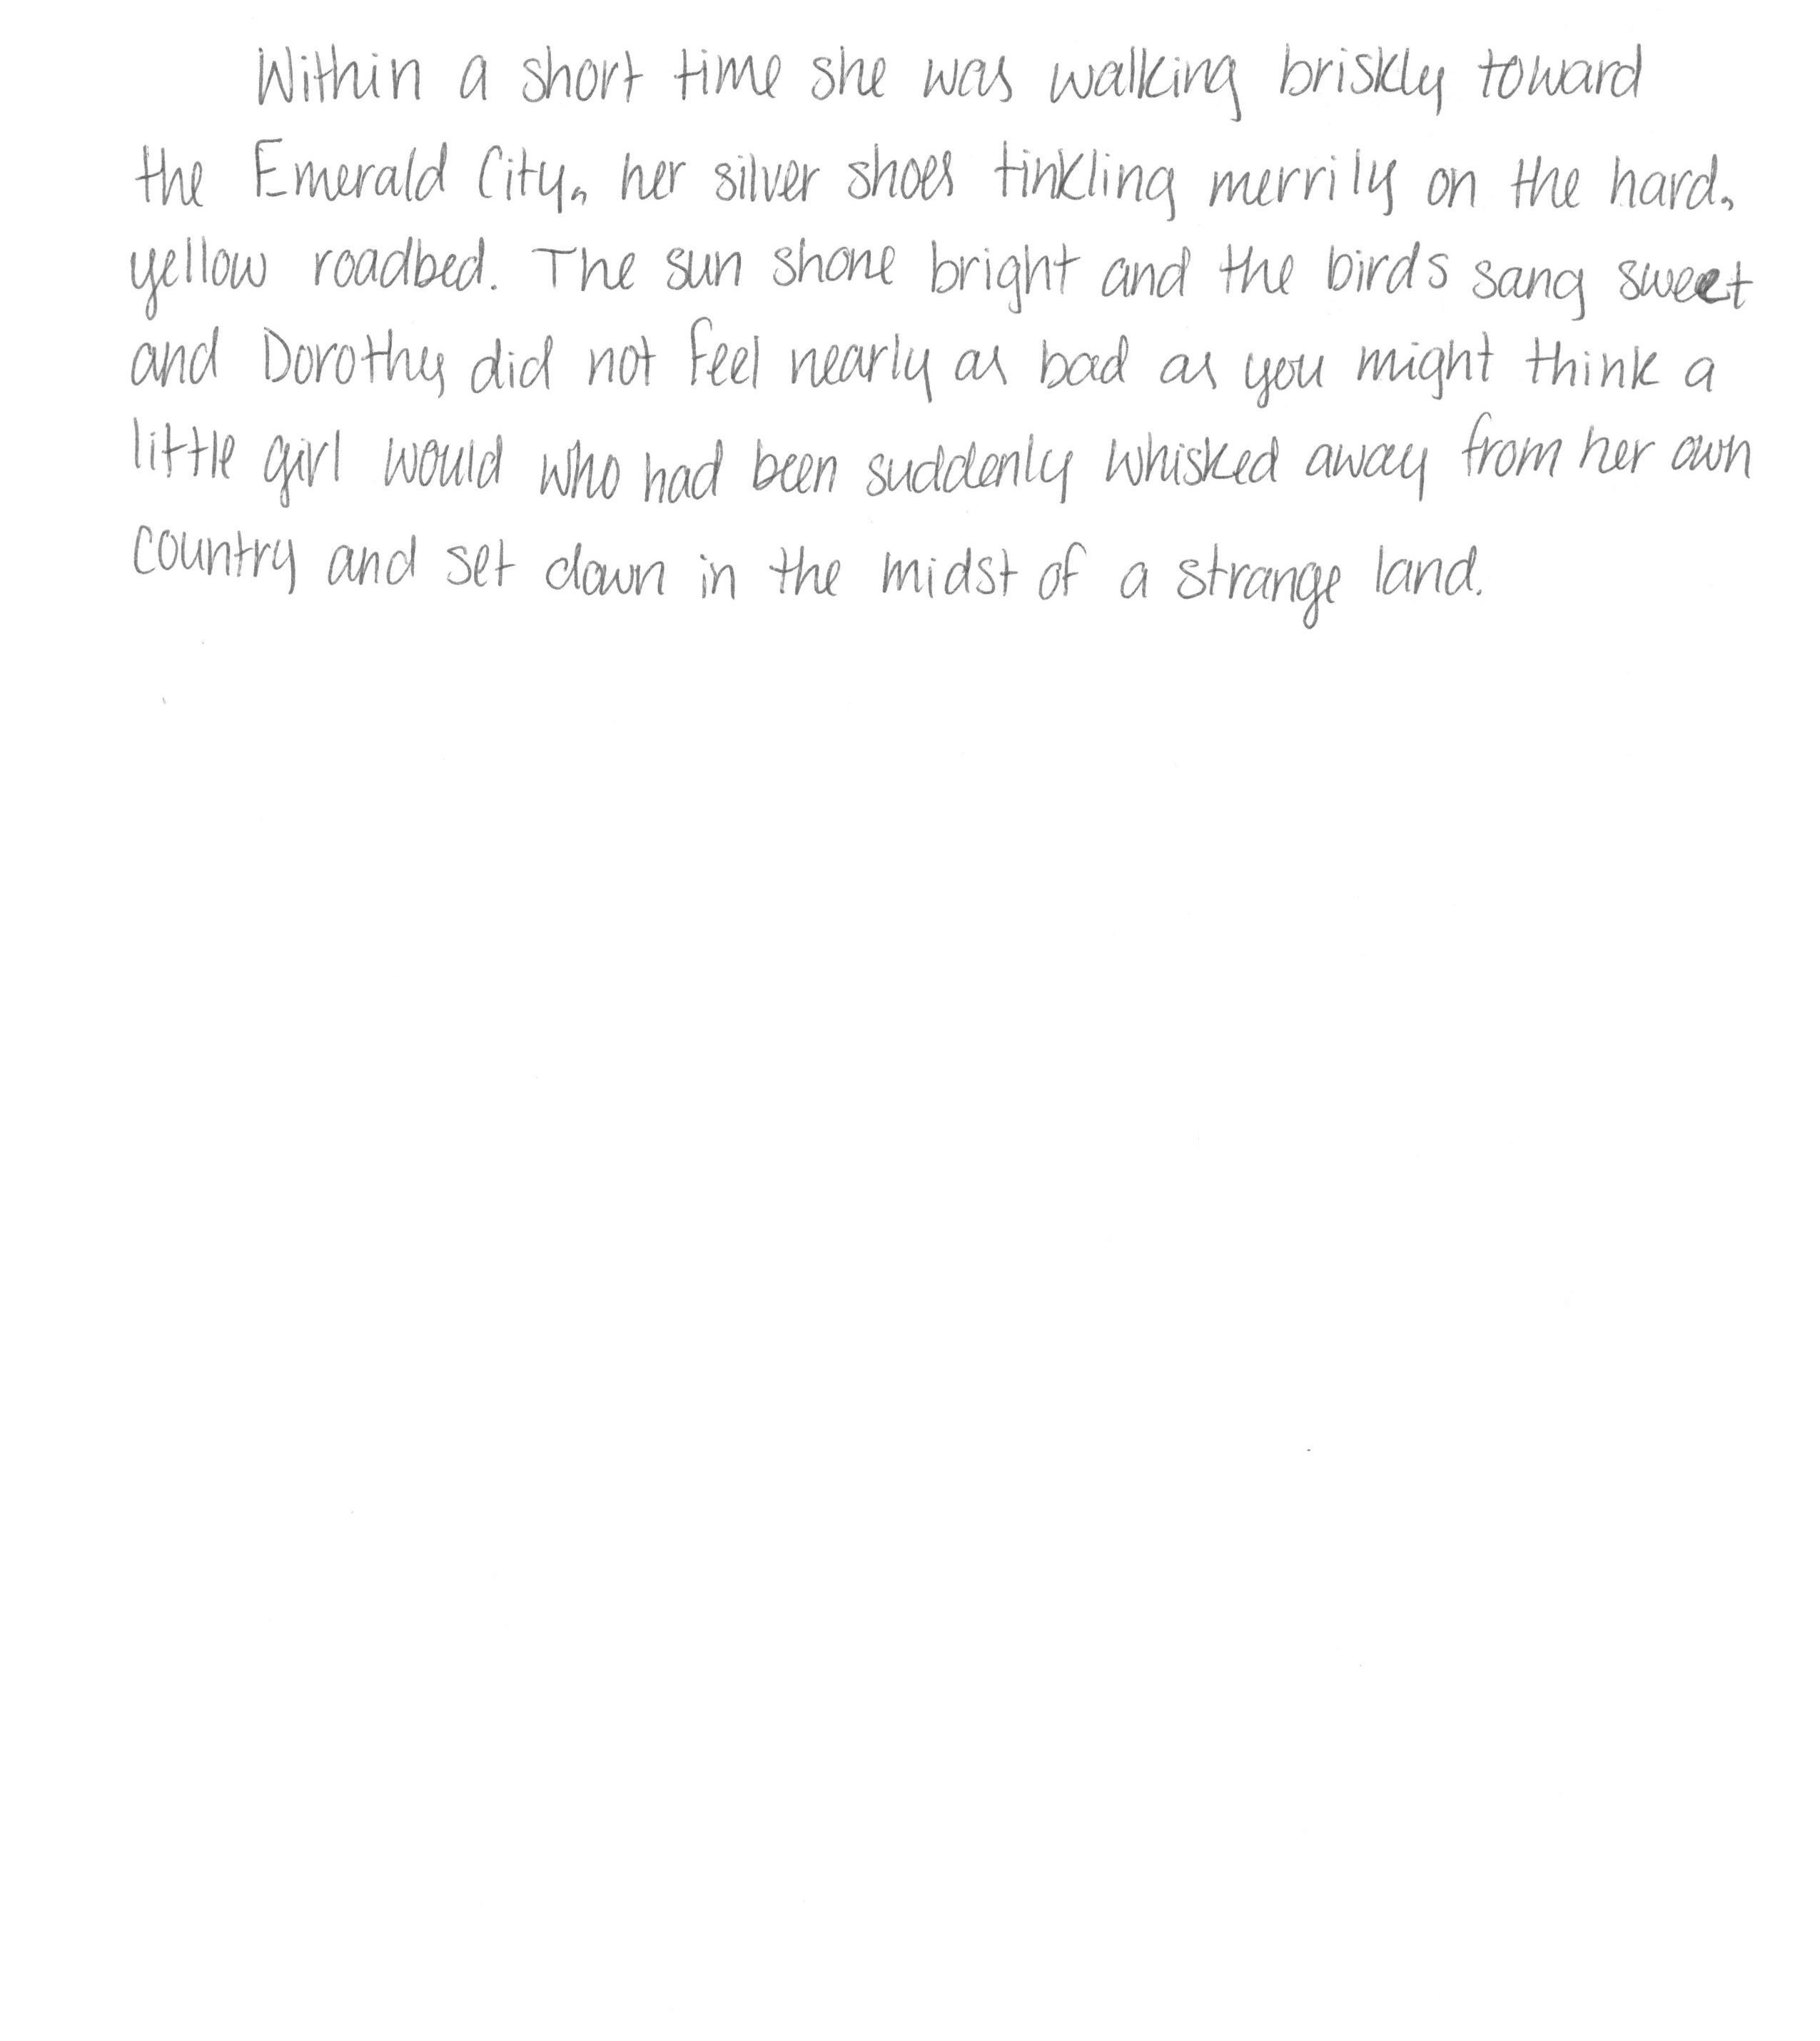 Within a short time she was walking briskly toward
the Emerald City, her silver shoes tinkling merrily on the hard,
yellow roadbed. The sun shone bright and the birds sang sweet
and Dorothy did not feel nearly as bad as you might think a
little girl would who had been suddenly whisked away from her own
country and set down in the midst of a strange land.